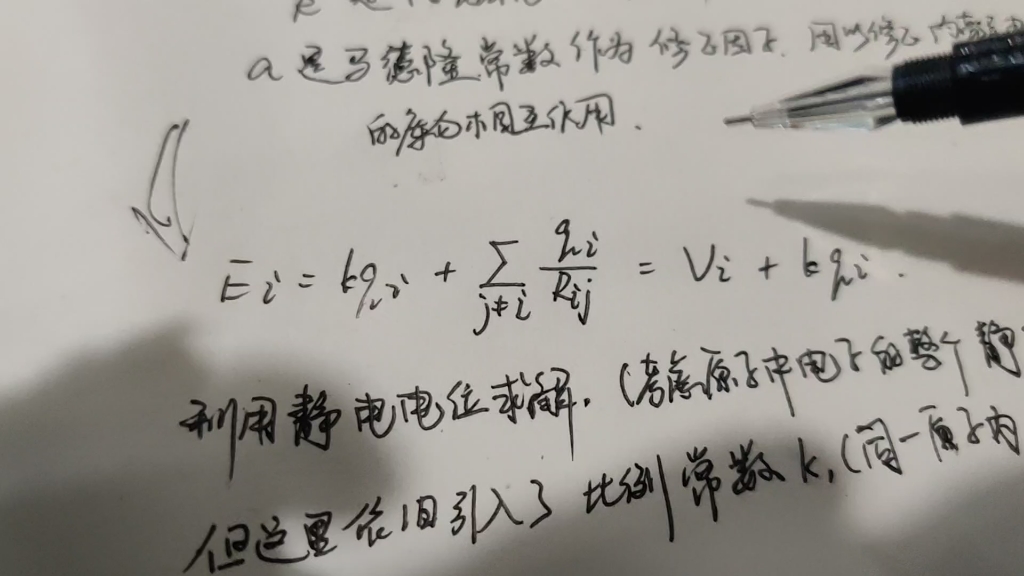 a是马德隆常数作为修正因子.用以修正内部
的库仑相互作用.
Ei = kqi + ∑j≠i qi/Rij = Vi + kqi.
利用静电电位求解.(考虑原子中电子的整个静
但这里依旧引入了比例常数k,(同一原子内